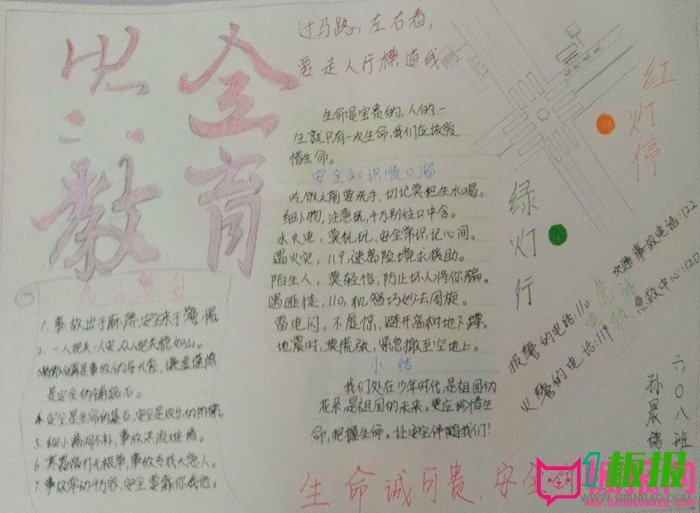 安全
教育
过马路，左右看，
要走人行横道线
红灯停
绿灯行
生命是宝贵的，人的一
生就只有一次生命，我们应该爱
惜生命。
安全知识顺口溜
吃饭之前要洗手，切记莫把生水喝。
细小物，注意玩，千万别往口中含。
水火电，莫乱玩，安全常识记心间。
遇火灾，119，速离险境求援助。
陌生人，莫轻信，防止坏人将你骗。
遇匪徒，110，机智巧妙去周旋。
雷电闪，不要惊，避开高树地下蹲。
地震时，莫慌张，紧急撤至空地上。
小结
我们处在少年时代，是祖国的
花朵，是祖国的未来。更应珍惜生
命，把握生命。让安全伴随我们！
名言警句
1.事故出于麻痹，安全来于警惕
2.一人把关一人安，众人把关稳如山。
是安全的铺路石。
4.安全是生命的基石，安全是欢乐的阶梯。
5.细小漏洞不补，事故洪流难堵。
交通事故电话：122
急救中心：120
报警的电话：110
火警的电话：119
六0八班
生命诚可贵，安全
1板报
WWW.1BANBAO.COM